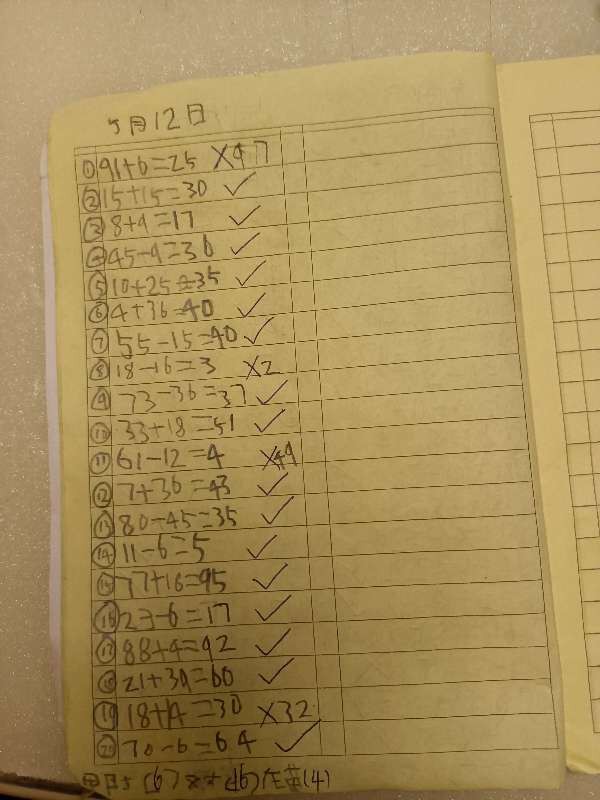 5月12日
①91+6=25 ×97
②15+15=30 ✓
③8+9=17 ✓
④45-9=36 ✓
⑤10+25=35 ✓
⑥4+36=40 ✓
⑦55-15=40 ✓
⑧18-16=3 ×2
⑨73-36=37 ✓
⑩33+18=51 ✓
⑪61-12=4 ×49
⑫7+36=43 ✓
⑬80-45=35 ✓
⑭11-6=5 ✓
⑮77+18=95 ✓
⑯23-6=17 ✓
⑰88+4=92 ✓
⑱21+39=60 ✓
⑲18+14=30 ×32
⑳70-6=64 ✓